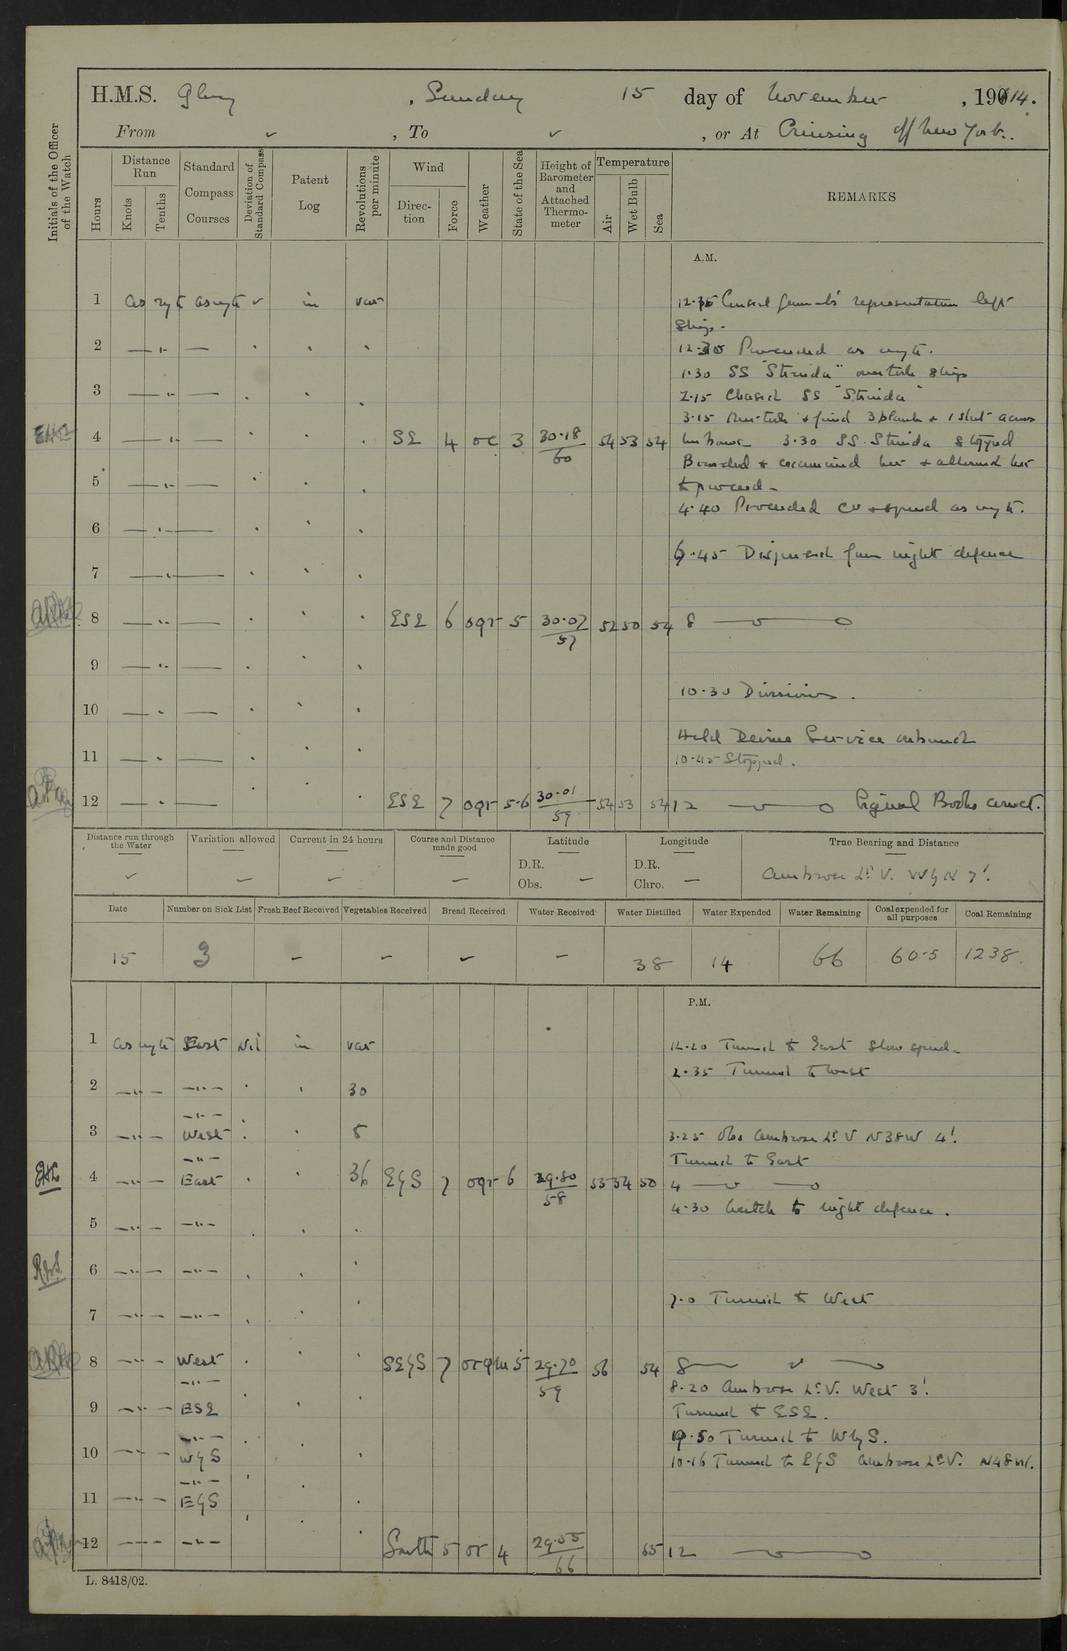 H.M.S. Glory, Sunday 15 day of November, 1914.
From ✓, To ✓, or At Cruising off New York.
Initials of the Officer of the Watch
Hours
Distance Run
Knots
Tenths
Standard Compass Courses
Deviation of Standard Compass
Patent Log
Revolutions per minute
Wind
Direction
Force
Weather
State of the Sea
Height of Barometer and Attached Thermometer
Temperature
Air
Wet Bulb
Sea
REMARKS
A.M.
1 as reqte as reqte ✓ in var
12.35 Consul General's representative left
Ship.
2
12.30 Proceeded as reqte.
1.30 SS "Struida" overtook ship
3
2.15 Chased SS "Struida"
3.15 Overtook & fired 3 blank & 1 shot across
4 SE 4 oc 3 30.18/60 54 53 54
her bows 3.30 SS. Struida stopped
Boarded & examined her & allowed her
5
to proceed -
4.40 Proceeded co & speed as reqte.
6
6.45 Dispersed from night defence
7
8 ESE 6 oqr 5 30.07/57 52 50 54 8
9
10.30 Divisions.
10
Held Devine Service onboard
11
10.45 Stopped.
12 ESE 7 oqr 5.6 30.01/59 54 53 54 12 Signal Books correct.
Distance run through the Water
Variation allowed
Current in 24 hours
Course and Distance made good
Latitude
D.R.
Obs. –
Longitude
D.R.
Chro. –
True Bearing and Distance
Ambrose Lt. V. WbyN 7'.
Date
Number on Sick List
Fresh Beef Received
Vegetables Received
Bread Received
Water Received
Water Distilled
Water Expended
Water Remaining
Coal expended for all purposes
Coal Remaining
15 3 – – – – 38 14 66 60.5 1238
P.M.
1 as reqte East Nil in var
12.20 Turned to East slow speed -
2.35 Turned to West
2 30
3 West 5
3.25 Obs Ambrose Lt V N38W 4'.
Turned to East
4 East 36 EbyS 7 oqr 6 29.80/58 55 54 50 4
4.30 Watch to night defence.
5
6
7
7.0 Turned to West
8 West SEbyS 7 5 29.70/59 56 54 8
8.20 Ambrose Lt. V. West 3'.
9 ESE
Turned to ESE.
9.50 Turned to WbyS.
10 WbyS
10.16 Turned to EbyS Ambrose Lt V. N48W.
11 EbyS
12 South 5 or 4 29.55/66 55 12
L. 8418/02.